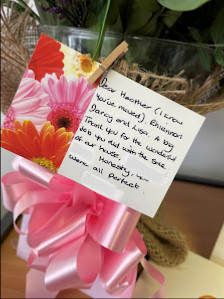 Dear Heather (I know
You've moved), Rhiannon
Darcy and Lisa. A big
Thank you for the wonderful
Job you did with the sale
of our house.
Honestly, you
were all perfect